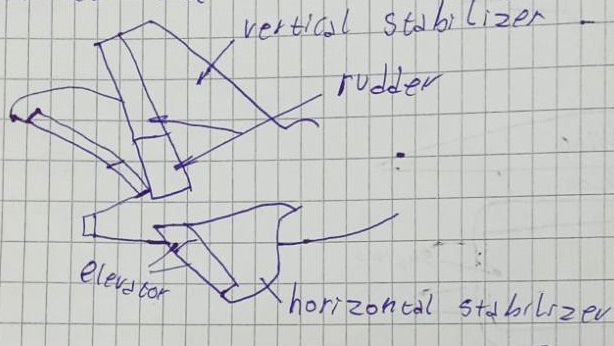 vertical stabilizer
rudder
elevator
horizontal stabilizer